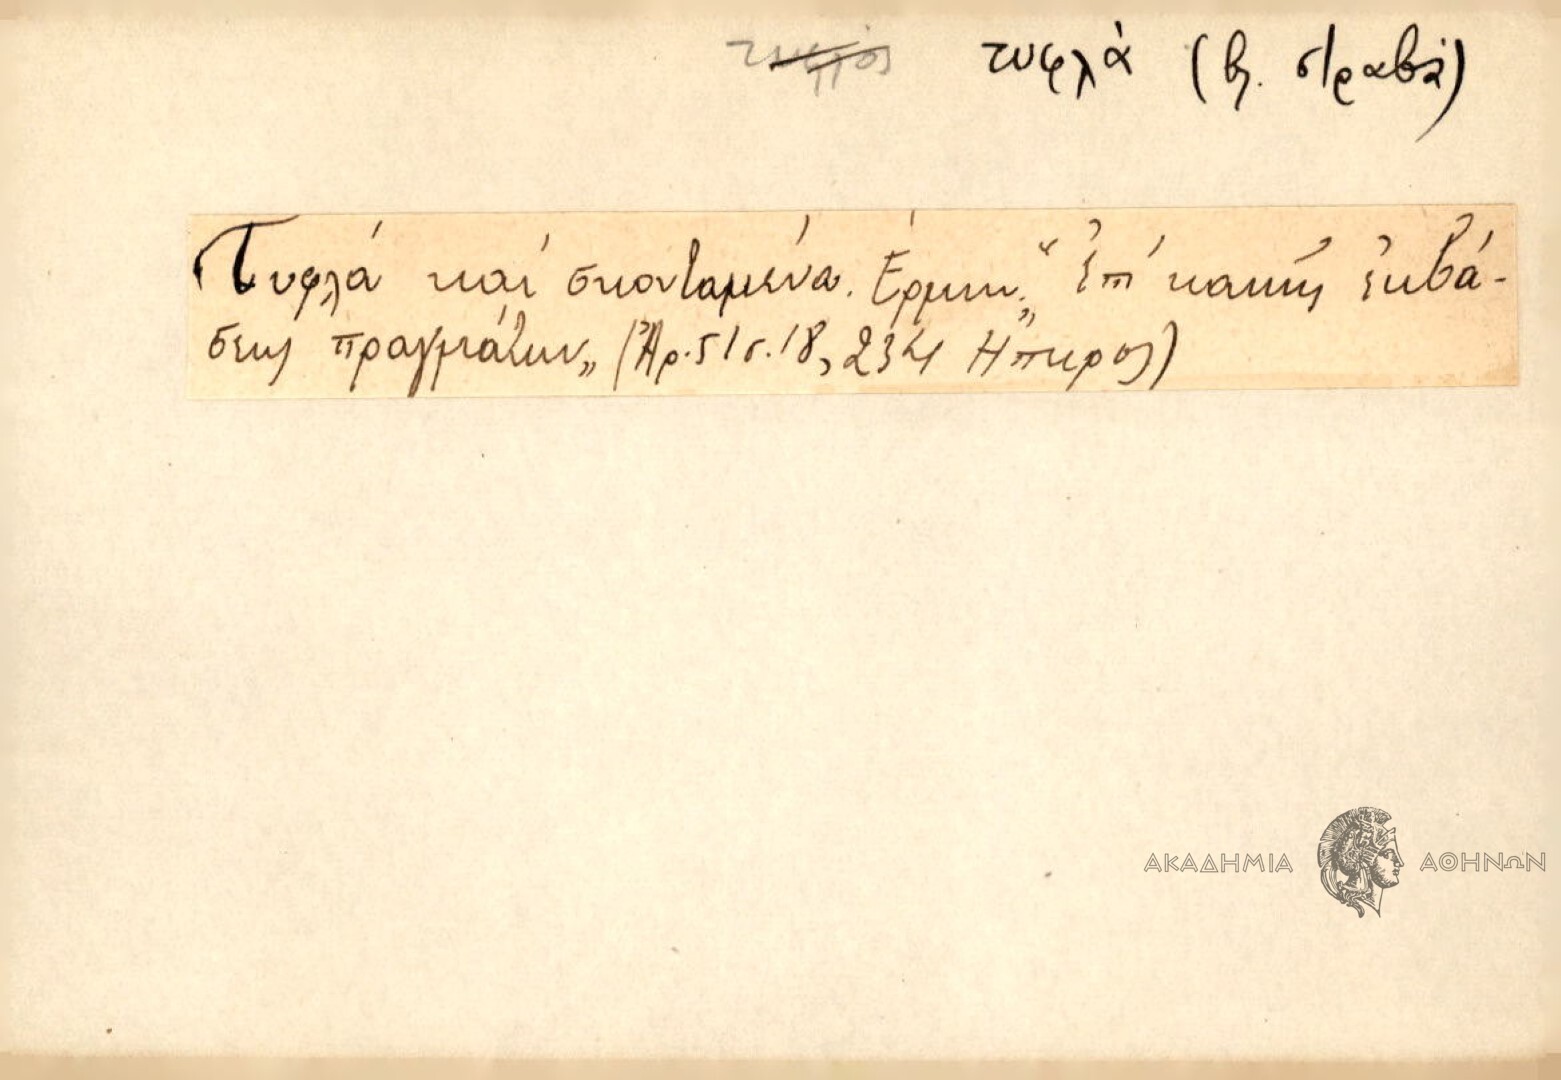 τυφλός τυφλά (βλ. στραβά)
Τυφλά καὶ σκονταμένα. Ἑρμην. "Ἐπὶ κακῆς ἐκβά-
σεως πραγμάτων" (Ἀρ. 51 σ. 18, 234 Ἤπειρος)
ΑΚΑΔΗΜΙΑ ΑΘΗΝΩΝ